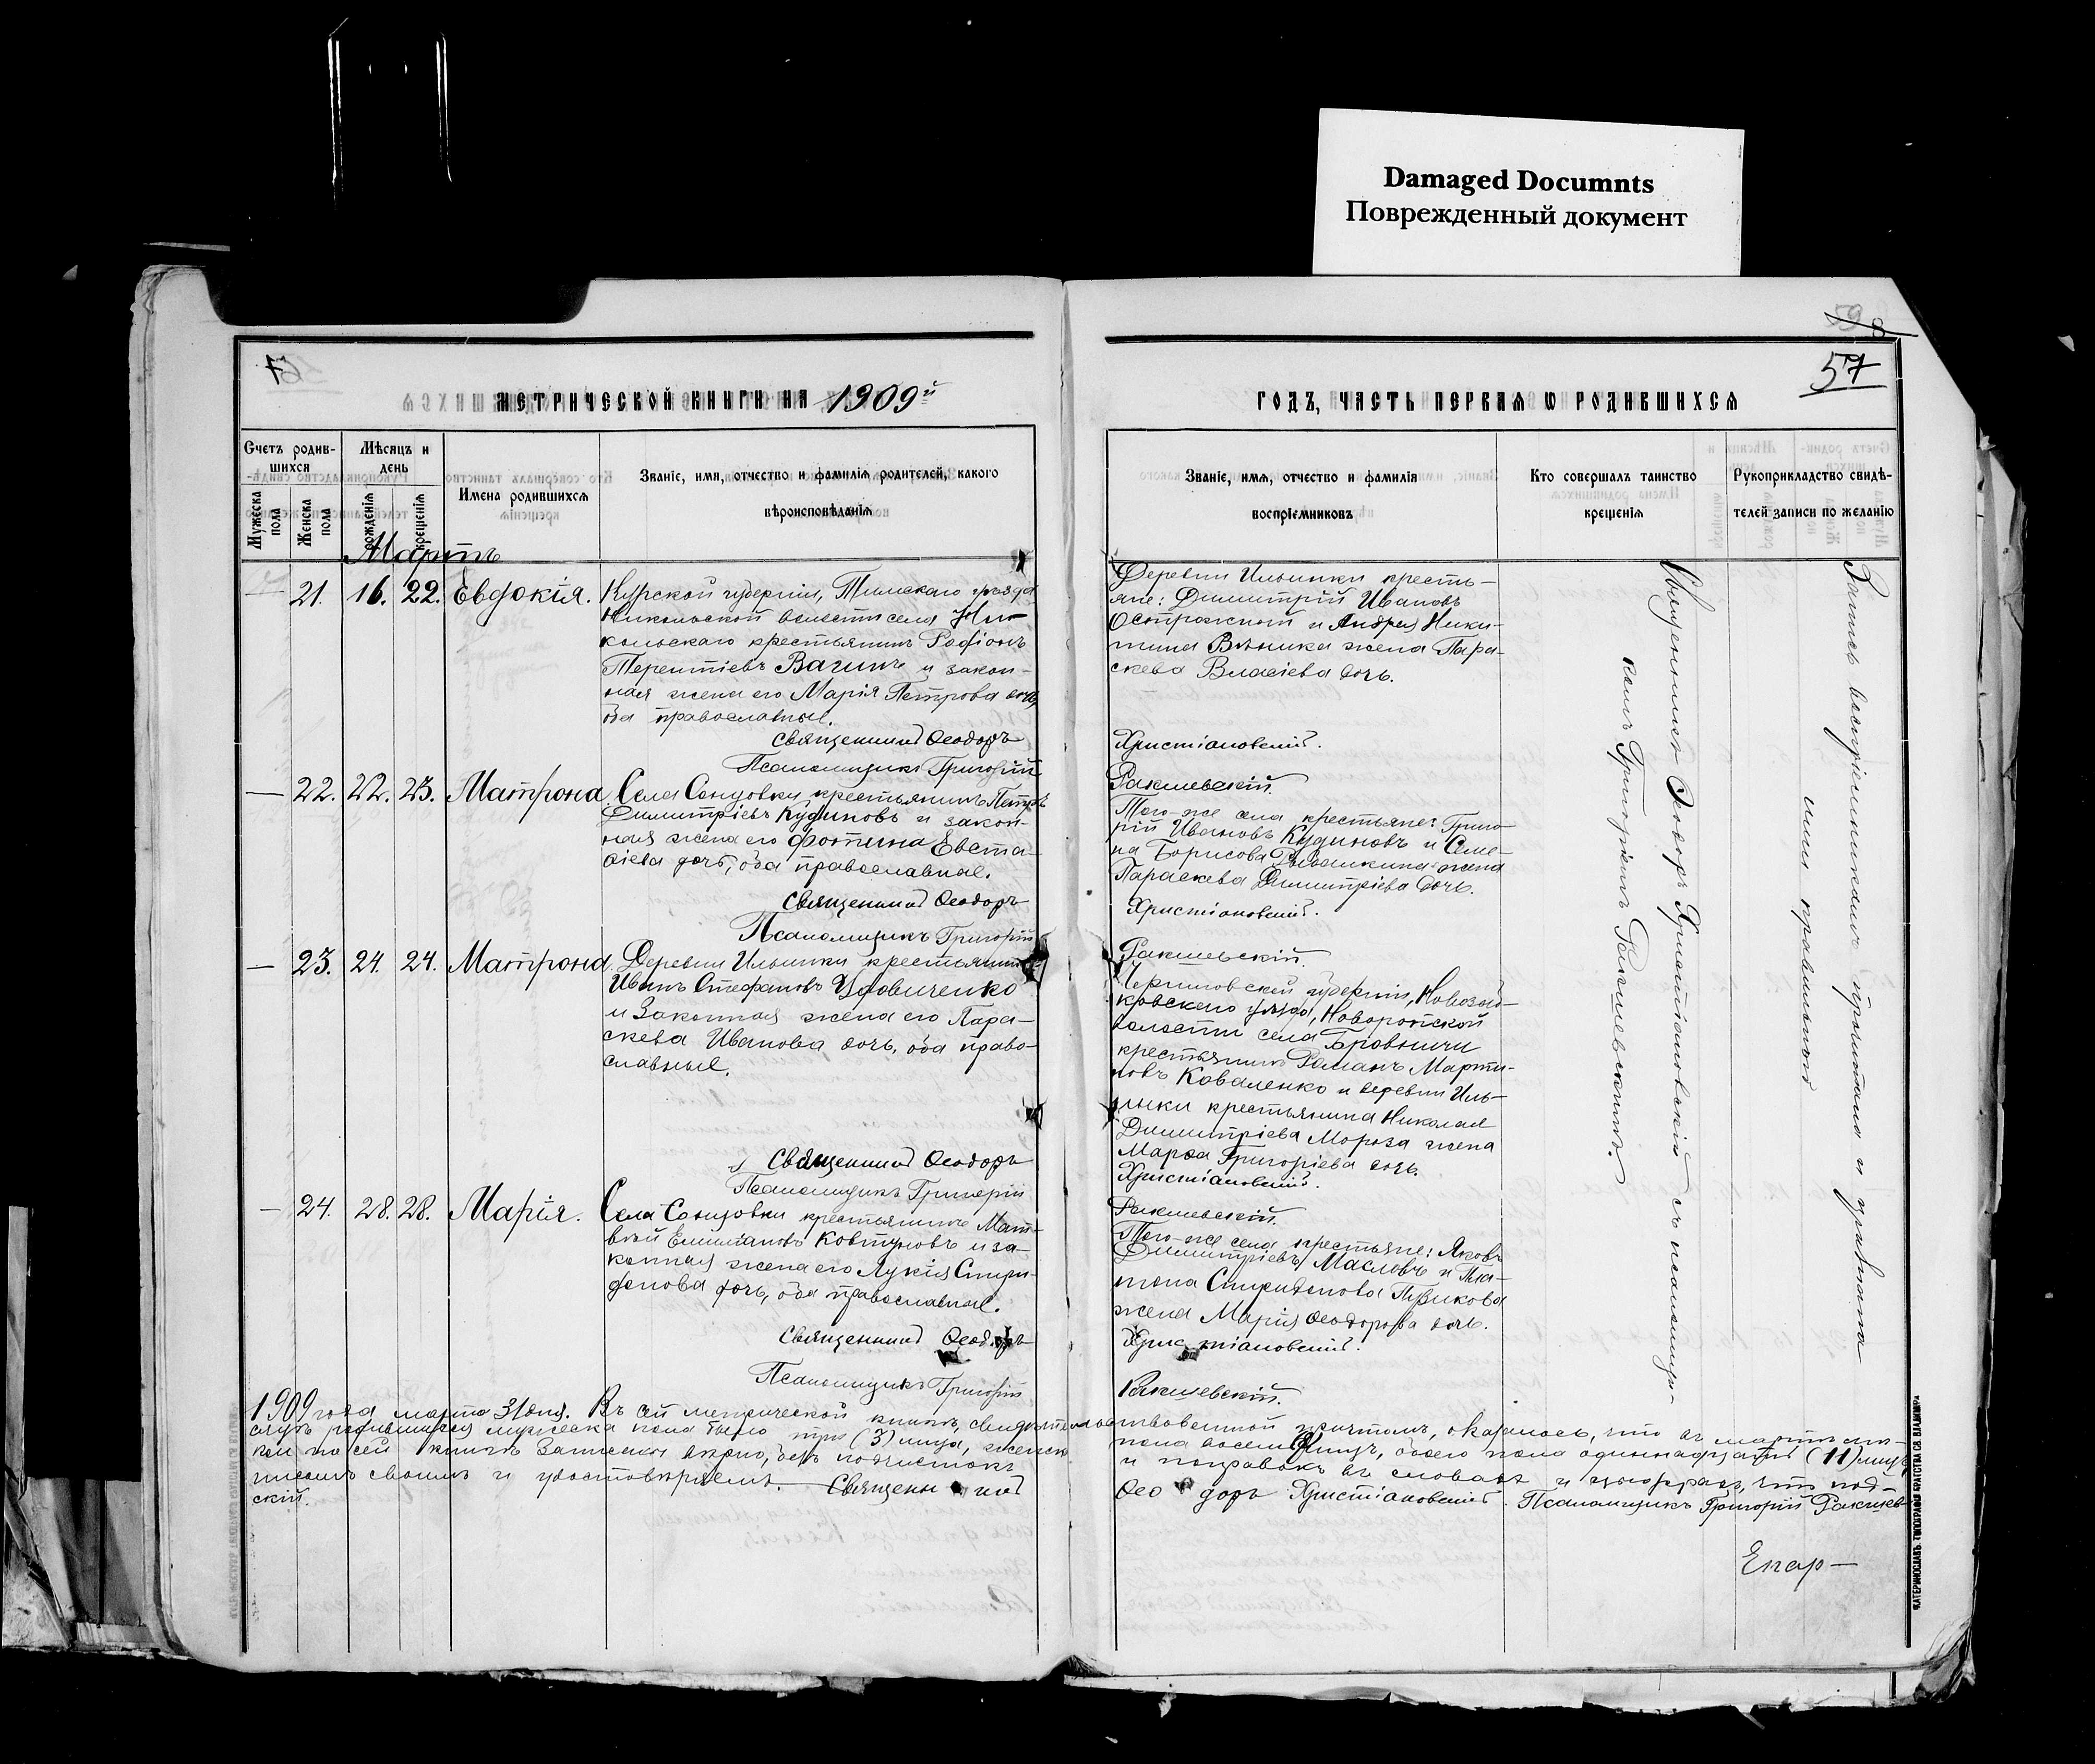 Damaged Documnts
Поврежденный документ
59
8
57
МЕТРИЧЕСКОЙ КНИГИ НА 1909й
ГОДЪ, ЧАСТЬ ПЕРВАЯ Ѡ РОДИВШИХСѦ
Счетъ родив-
шихся
Мѣсяцъ и
день
Мужеска
пола
Женска
пола
рожденія
крещенія
Имена родившихсѧ
Званіе, имя, отчество и фамилія родителей, какого
вѣроисповѣданія
Званіе, имѧ, отчество и фамилія
воспріемниковъ
Кто совершалъ таинство
крещенія
Рукоприкладство свидѣ-
телей записи по желанію
Мартъ
21. 16. 22. Евдокія.
Курской губерніи, Тимскаго уѣзда
Никольской волости села Ни-
кольскаго крестьянинъ Родіонъ
Терентіевъ Вагинъ и закон-
ная жена его Марія Петрова дочь,
оба православные.
Священникъ Ѳеодоръ
Псаломщикъ Григорій
Деревни Ильинки кресть-
яне: Димитрій Ивановъ
и Андрея Ники-
тина жена Пара-
скева Власіева дочь.
Христіановскій.
Ракшевскій.
— 22. 22. 23. Матрона.
Села Сонцовки крестьянинъ Петръ
Димитріевъ Кудиновъ и закон-
ная жена его Фотина Евста-
фіева дочь, оба православные.
Священникъ Ѳеодоръ
Псаломщикъ Григорій
Того-же села крестьяне: Григо-
рій Ивановъ Кудиновъ и Семе-
на Борисова жена
Параскева Димитріева дочь.
Христіановскій.
Ракшевскій.
— 23. 24. 24. Матрона.
Деревни Ильинки крестьянинъ
Иванъ Стефановъ Удовиченко
и законная жена его Пара-
скева Иванова дочь, оба право-
славные.
Священникъ Ѳеодоръ
Псаломщикъ Григорій
Черниговской губерніи, Новозыб-
ковскаго уѣзда, Новоропской
волости села Бровничи
крестьянинъ Романъ Марти-
новъ Коваленко и деревни Иль-
инки крестьянина Николая
Димитріева Мороза жена
Марѳа Григоріева дочь.
Христіановскій.
Ракшевскій.
— 24. 28. 28. Марія.
Села Сонцовки крестьянинъ Мат-
вѣй Емиліановъ Ковтуновъ и за-
конная жена его Лукія Спири-
донова дочь, оба православные.
Священникъ Ѳеодоръ
Псаломщикъ Григорій
Того-же села крестьяне: Яковъ
Димитріевъ Масловъ и Пла-
тона Спиридонова Пузикова
жена Марія Ѳеодорова дочь.
Христіановскій.
Ракшевскій.
Священникъ Ѳеодоръ Христіановскій съ псаломщи-
комъ Григоріемъ Ракшевскимъ.
Запись воспріемникамъ прочитана и признана
ими правильною
1909 года марта 31 дня. Въ сей метрической книгѣ, свидѣтельствованной причтомъ, оказалось, что въ мартѣ мѣ-
сяцѣ родившихся мужеска пола было три (3) лица, женска пола восемь лицъ, обоего пола одиннадцать (11) лицъ,
кои по сей книгѣ записаны вѣрно, безъ подчистокъ и поправокъ въ словахъ и цыфрахъ, что под-
писомъ своимъ и удостовѣряемъ. — Священникъ Ѳеодоръ Христіановскій. Псаломщикъ Григорій Ракшев-
скій.
Екар—
ЕКАТЕРИНОСЛАВЪ. ТИПОГРАФІЯ БРАТСТВА СВ. ВЛАДИМІРА